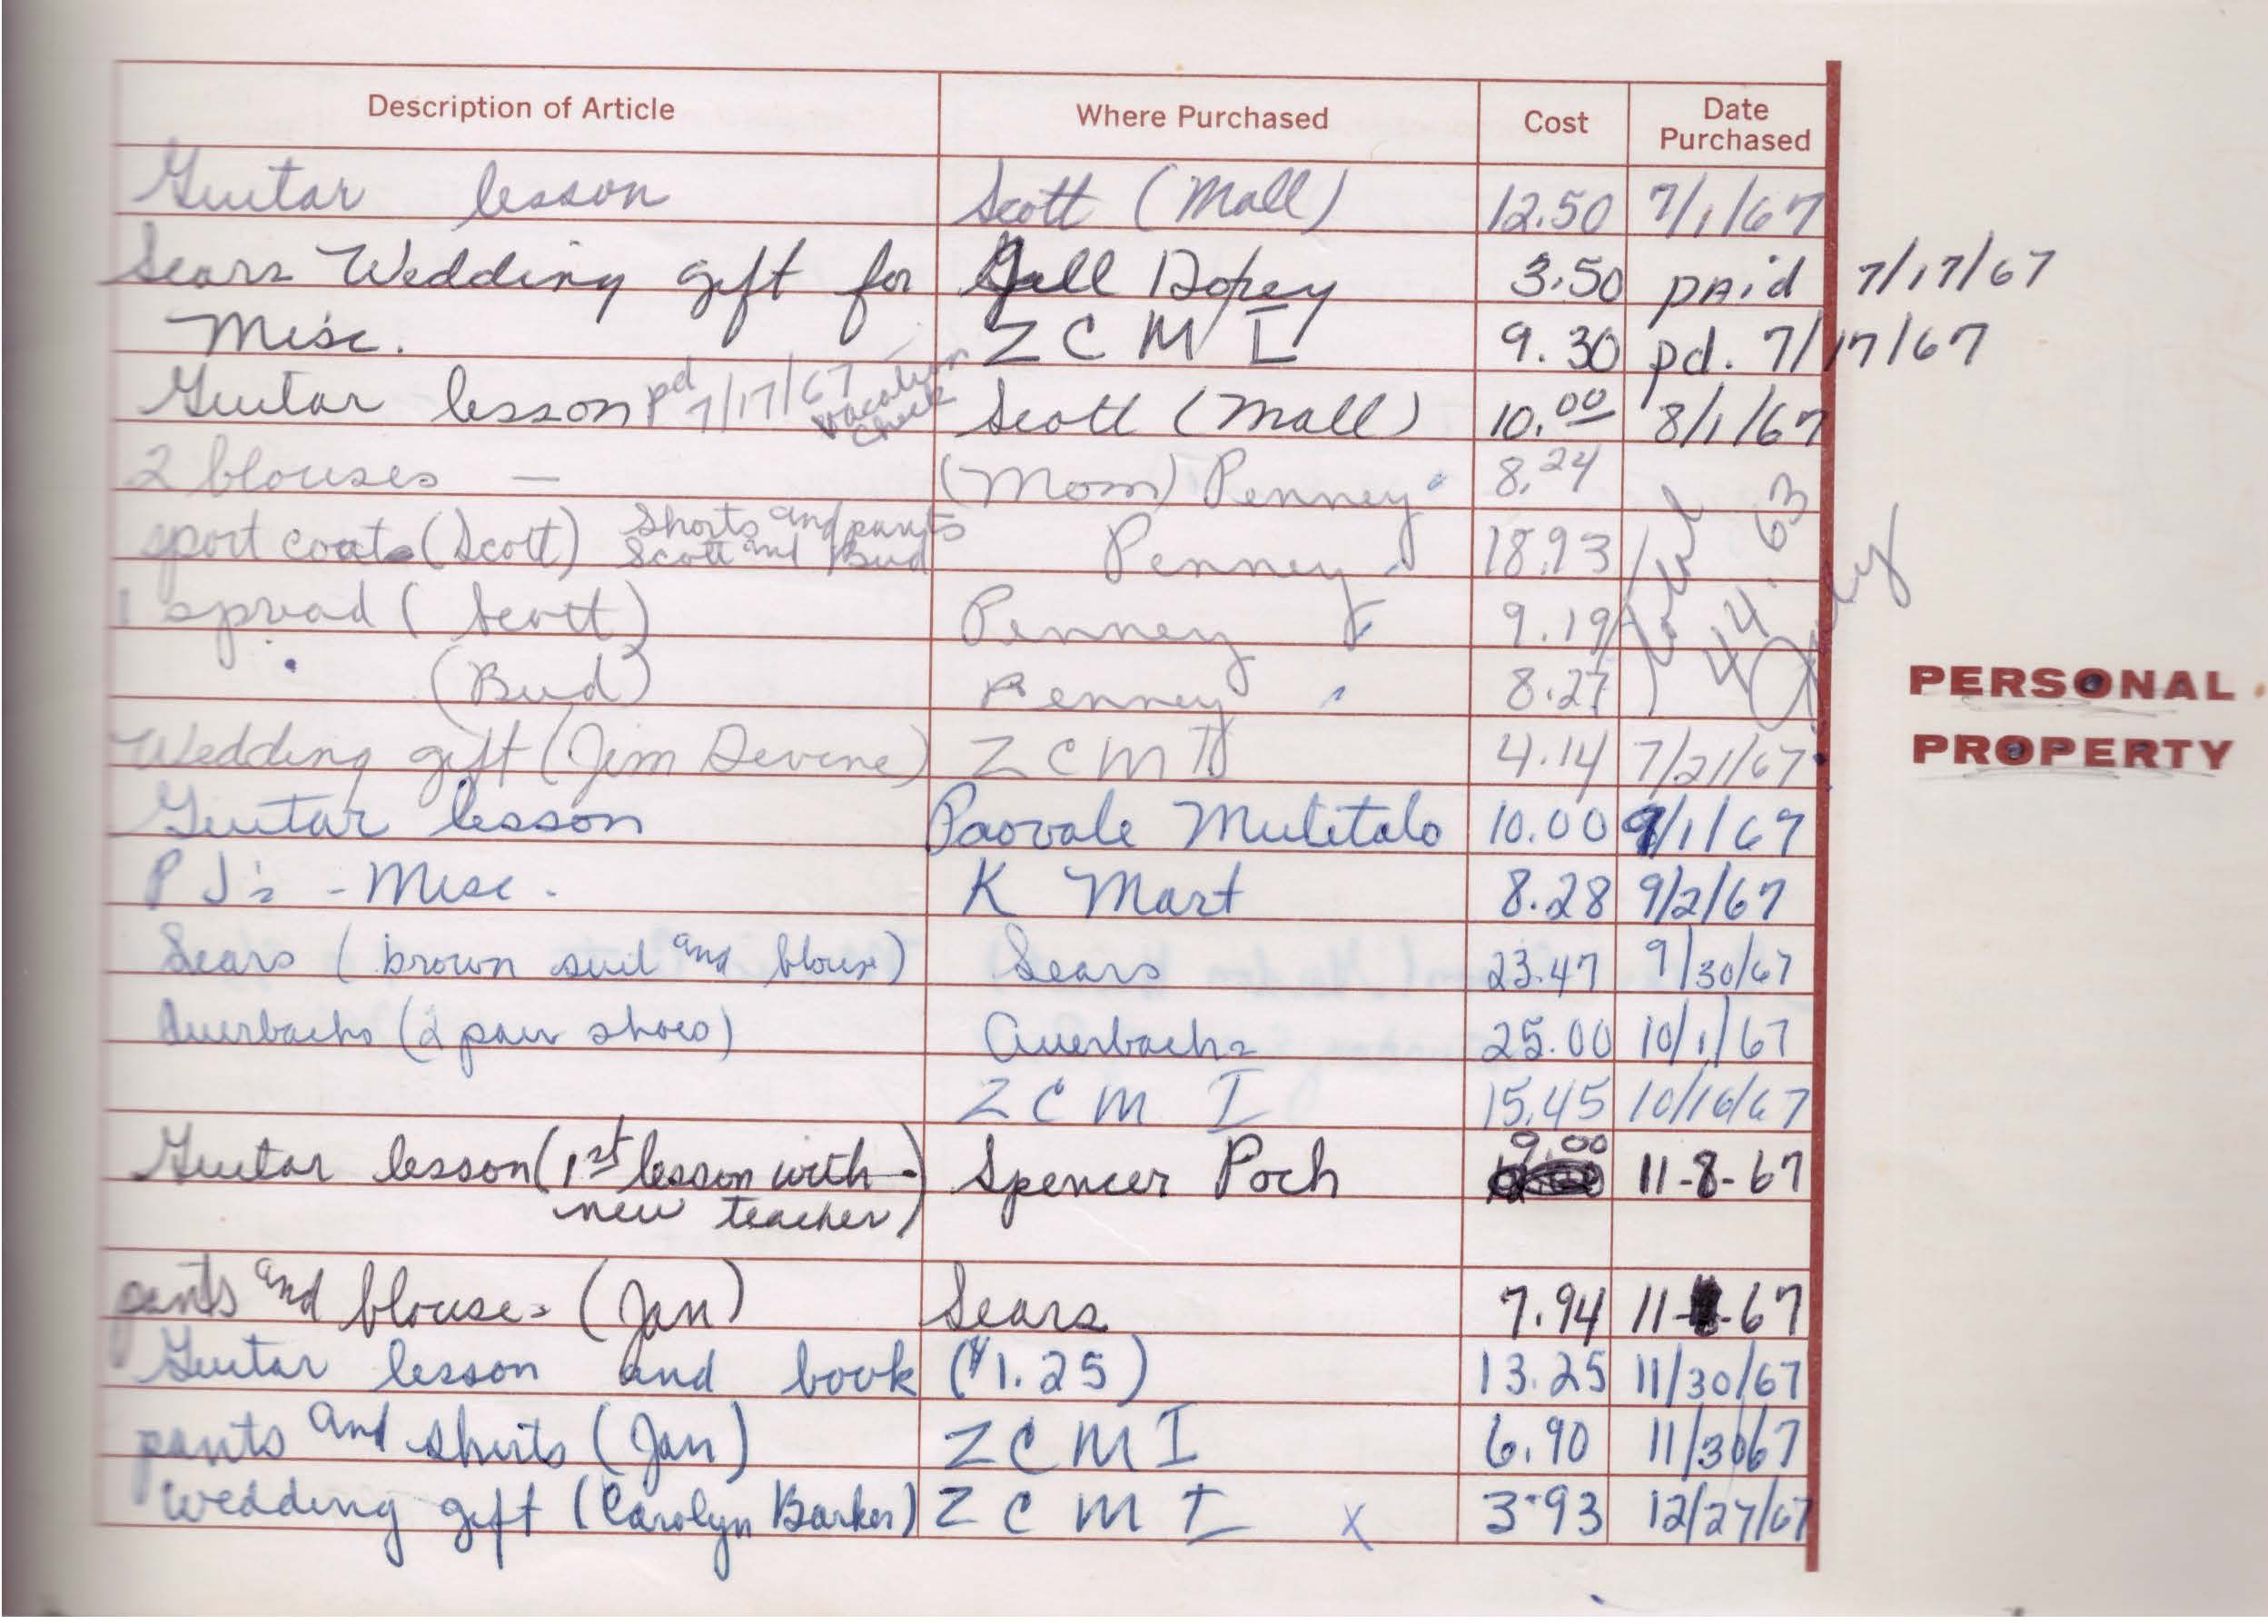 Description of Article Where Purchased Cost Date Purchased
Guitar lesson Scott (Mall) 12.50 7/1/67
Sears Wedding gift for 3.50 paid 7/17/67
Misc. Z C M I 9.30 pd. 7/17/67
Guitar lesson pd 7/17/67 vacation check Scott (Mall) 10.00 8/1/67
2 blouses — (Mom) Penney 8.24
sport coat (Scott) Shorts and pants Scott and Bud Penney 18.93
1 spread (Scott) Penney 9.19
(Bud) Penney 8.27
44.63
Wedding gift (Jim Devine) Z C M I 4.14 7/21/67
PERSONAL
PROPERTY
Guitar lesson Paovale Mulitalo 10.00 9/1/67
P J's - Misc. K Mart 8.28 9/2/67
Sears (brown suit and blouse) Sears 23.47 9/30/67
Auerbachs (2 pair shoes) Auerbachs 25.00 10/1/67
Z C M I 15.45 10/16/67
Guitar lesson (1st lesson with new teacher) Spencer Poch 9.00 11-8-67
pants and blouses (Jan) Sears 7.94 11- -67
Guitar lesson and book ($1.25) 13.25 11/30/67
pants and shirts (Jan) Z C M I 6.90 11/30/67
Wedding gift (Carolyn Barker) Z C M I X 3.93 12/27/67